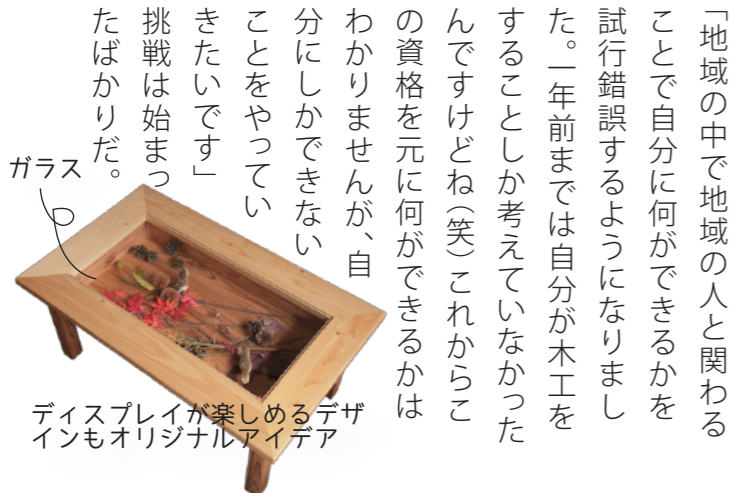 「地域の中で地域の人と関わる
ことで自分に何ができるかを
試行錯誤するようになりまし
た。一年前までは自分が木工を
することしか考えていなかった
んですけどね（笑）これからこ
の資格を元に何ができるかは
わかりませんが、自
分にしかできない
ことをやってい
きたいです」
挑戦は始まっ
たばかりだ。
ガラス
ディスプレイが楽しめるデザ
インもオリジナルアイデア